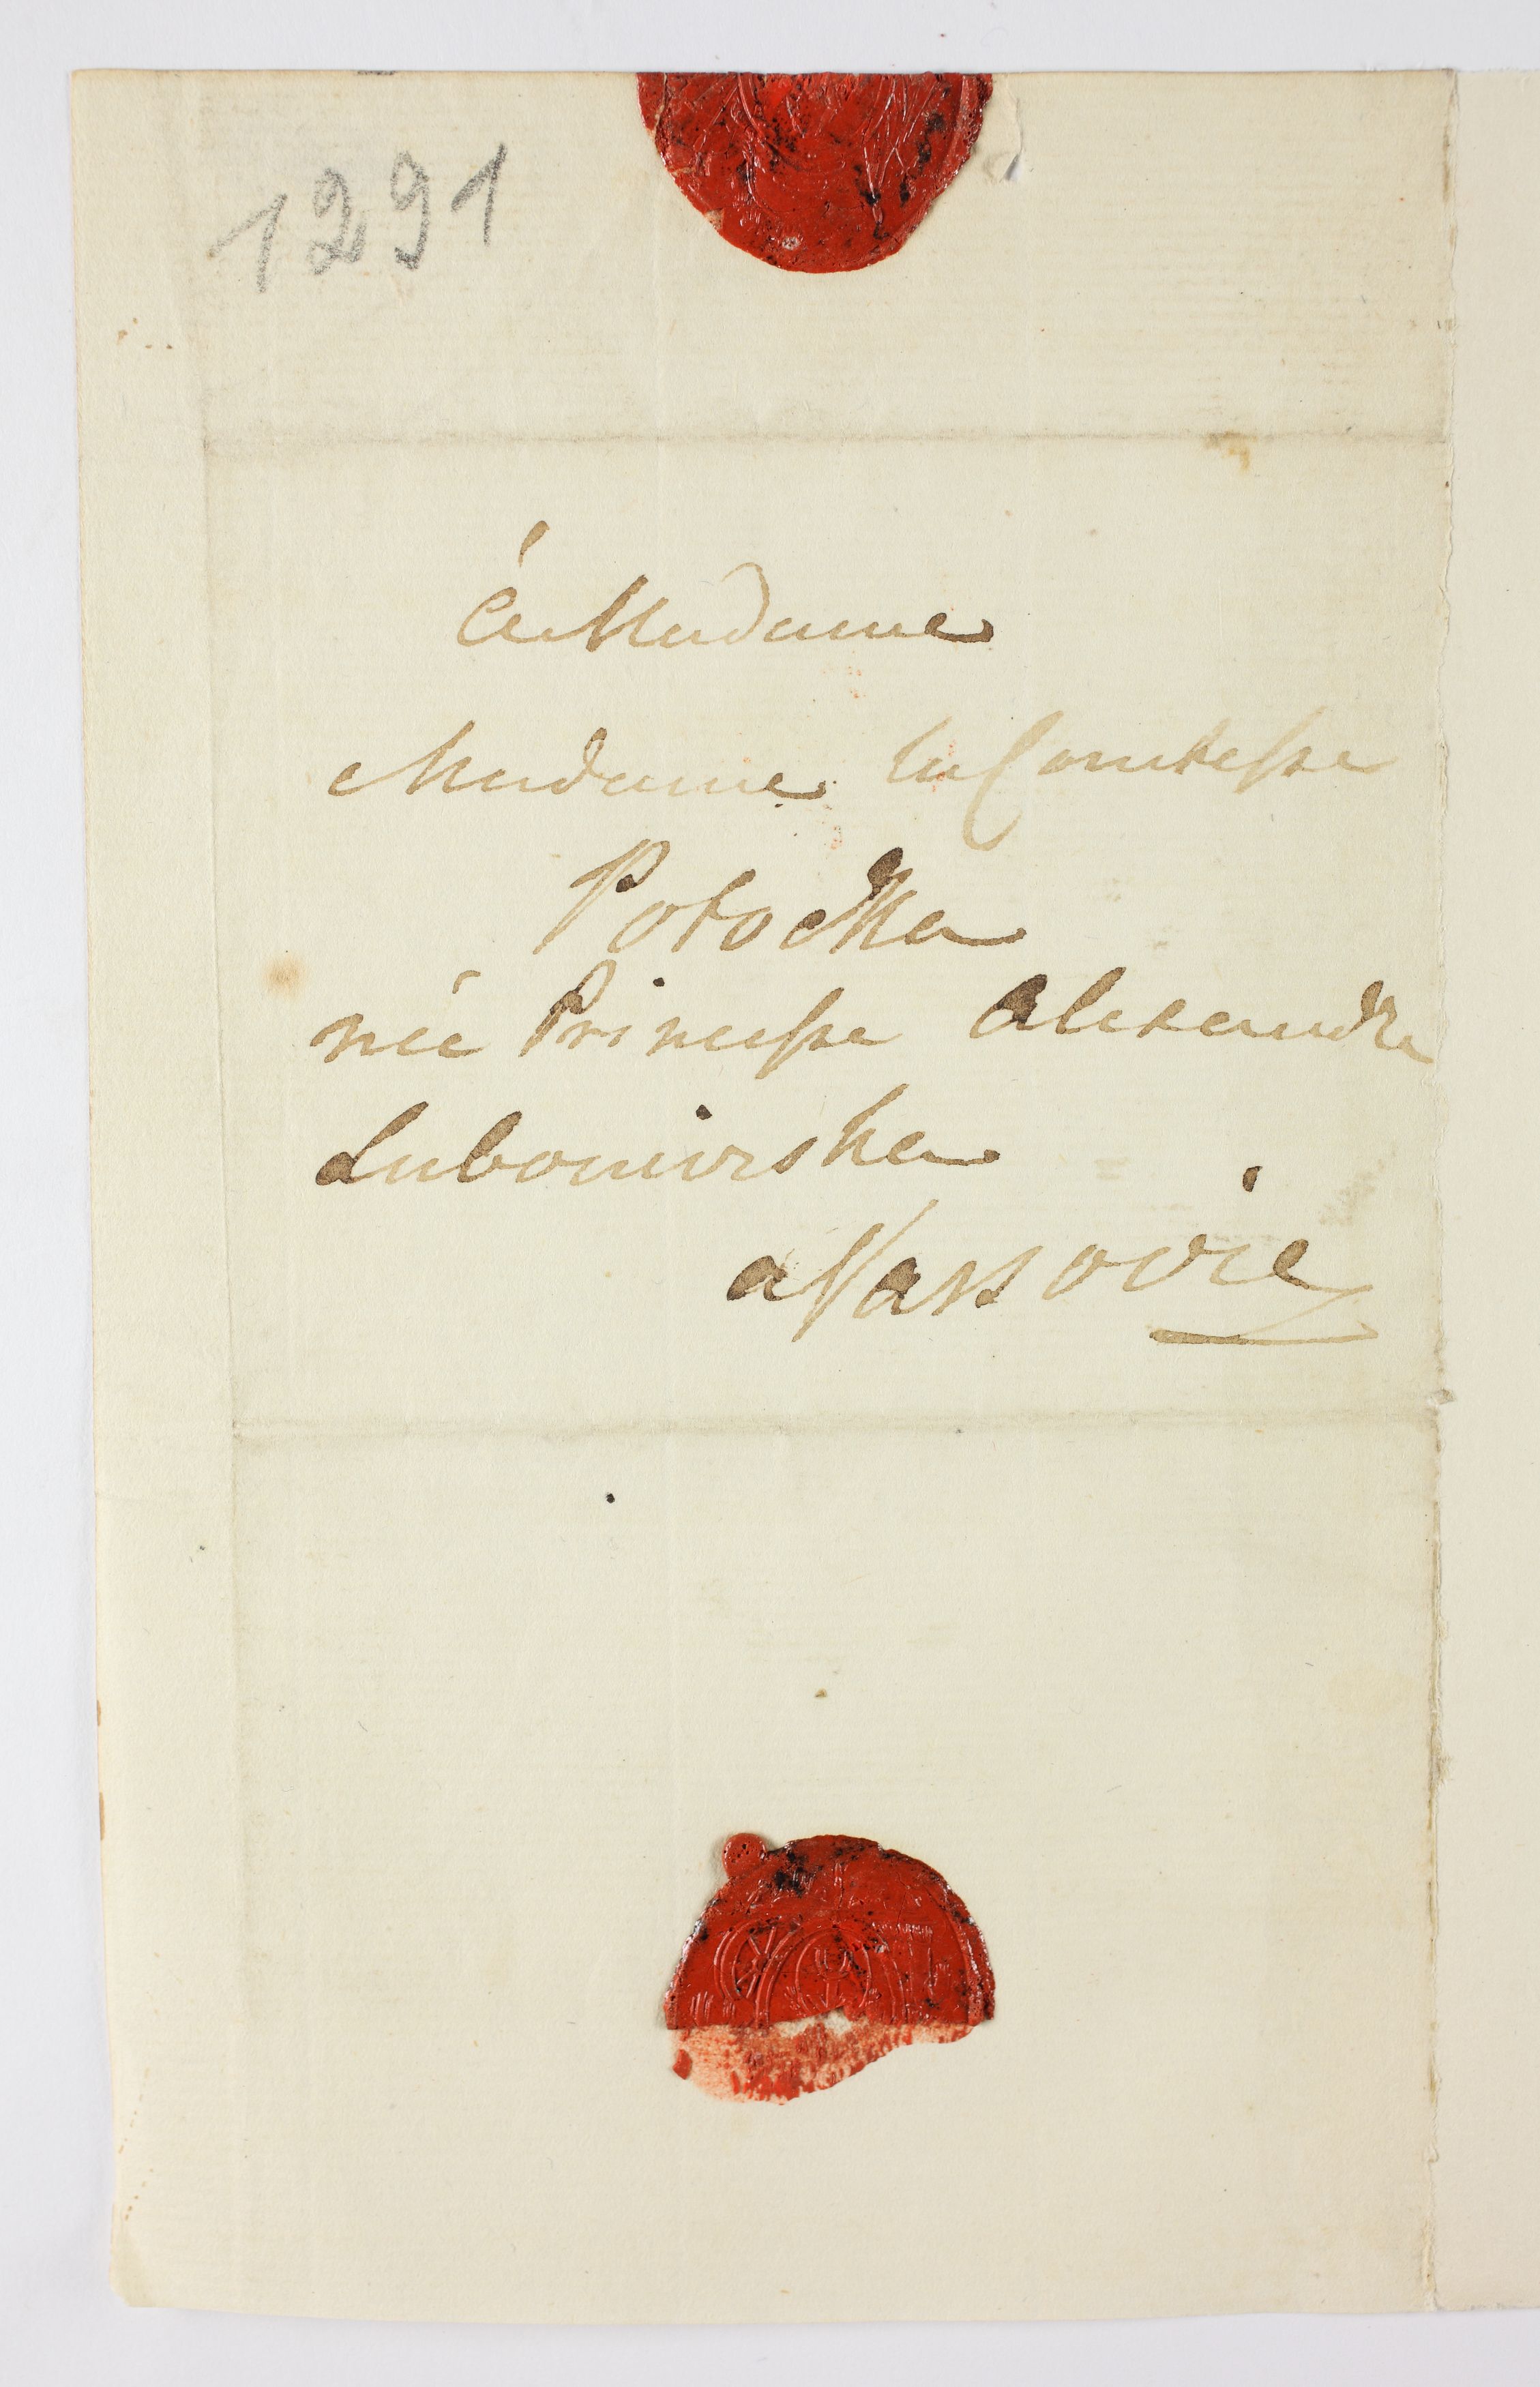 1291
à Madame
Madame la Comtesse
Potocka
née Princesse Alexandre
Lubomirska
a Varsovie